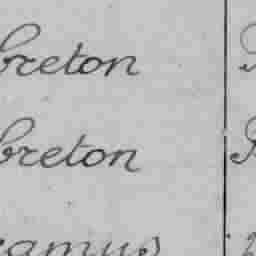 breton
breton
camus